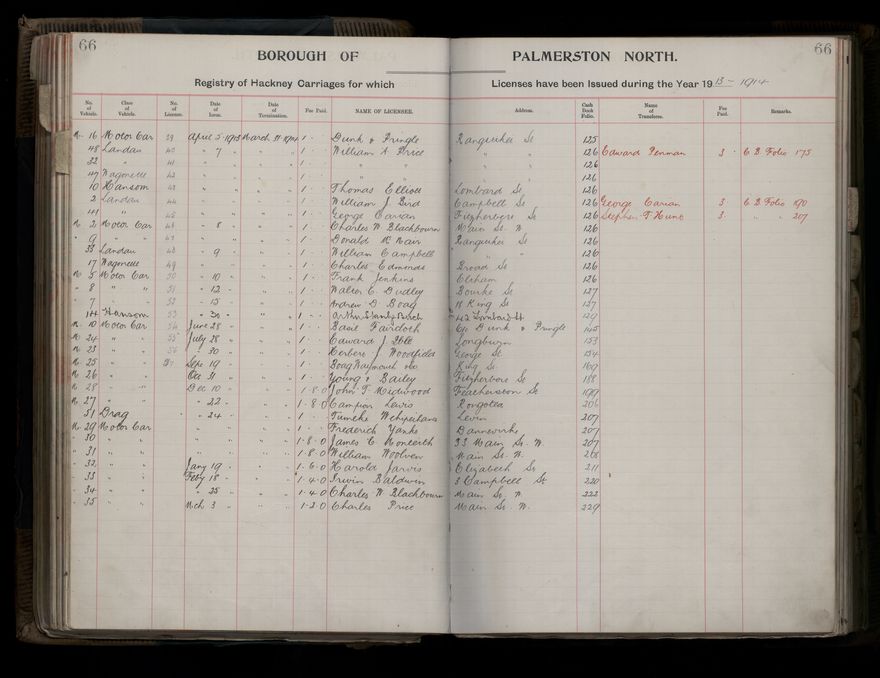 66
66
BOROUGH OF PALMERSTON NORTH.
Registry of Hackney Carriages for which Licenses have been Issued during the Year 1913 - 1914
No. of Vehicle. Class of Vehicle. No. of License. Date of Issue. Date of Termination. Fee Paid. NAME OF LICENSEE. Address. Cash Book Folio. Name of Transferee. Fee Paid. Remarks.
M 16 Motor Car 39 April 5 1913 March 31 1914 1 - - Dunk & Pringle Rangitikei St 125
48 Landau 40 " 7 " " " 1 - - William A Price " " 126 Edward Penman 3 - C B Folio 175
32 " 41 " " " " 1 - - " " " " 126
47 Wagonette 42 " " " " 1 - - " " " " 126
10 Hansom 43 " " " " 1 - - Thomas Elliott Lombard St 126
2 Landau 44 " " " " 1 - - William J Bird Campbell St 126 George Cavan 3 C B Folio 190
41 " 45 " " " " 1 - - George Cavan Fitzherbert St 126 Stephen F Hunt 3 " " 207
M 2 Motor Car 46 " 8 " " 1 - - Charles W Blackbourn Main St W 126
" 9 " " 47 " " " " 1 - - Donald Mc Nair Rangitikei St 126
33 Landau 48 " 9 " " 1 - - William Campbell " " 126
17 Wagonette 49 " " " " 1 - - Charles Edmonds Broad St 126
M 5 Motor Car 50 " 10 " " 1 - - Frank Jenkins Eltham 126
" 8 " " 51 " 12 " " 1 - - Walter E. Dudley Bourke St 127
" 7 " " 52 " 15 " " 1 - - Andrew D Boag 18 King St 127
44 Hansom 53 " 30 " " 1 - - Arthur Stanley Birch 42 Lombard St 129
M 10 Motor Car 54 June 28 " " 1 - - Basil Fairdoth C/o Dunk & Pringle 145
M 24 " " 55 July 28 " " 1 - - Edward J. Longburn 153
M 23 " " 56 " 30 " " 1 - - Herbert J Woodfield George St 154
M 25 " " 57 Sept 19 " " 1 - - Boag Waymouth King St 169
M 26 " " Oct 31 " " 1 - - Young & Bailey Fitzherbert St 188
M 28 " " Dec 10 " " 1 - 8 - 0 John T Midwood Featherston St 199
M 27 " " " 22 " " 1 - 8 - 0 Campion Lewis Rongotea 206
31 Drag " 24 " " 1 - - Tumeke Wehipeihana Levin 207
M 29 Motor Car " " " " 1 - - Frederich Yanke Dannevirke 207
30 " " " " " " 1 - 8 - 0 James C Monteith 33 Main St. W. 207
" 31 " " " " " " 1 - 8 - 0 William Woolven Main St. W. 208
" 32 " " Jany 19 " " 1 - 6 - 0 Harold Jarvis Elizabeth St 211
" 33 " " Feby 18 " " 1 - 4 - 0 Irwin Baldwin 3 Campbell St 220
" 34 " " " 25 " " 1 - 4 - 0 Charles W Blackbourn Main St. W 222
" 35 " " Mch 3 " " 1 - 2 - 0 Charles Price Main St. W. 229